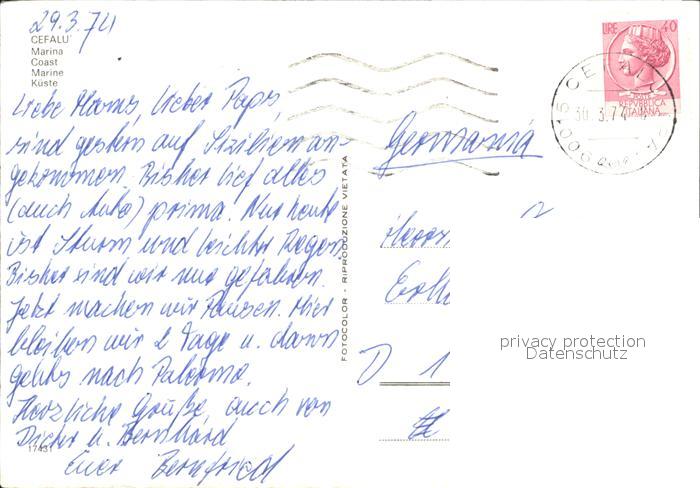 29.3.74
CEFALU'
Marina
Coast
Marine
Küste
Liebe Mams, Lieber Paps,
sind gestern auf Sizilien an-
gekommen. Bisher lief alles
(auch Auto) prima. Nur heute
ist Sturm und leichter Regen.
Bisher sind wir nur gefahren.
Jetzt machen wir Pausen. Hier
bleiben wir 2 Tage u. dann
gehts nach Palermo.
Herzliche Grüße, auch von
Dieter u. Bernhard
Euer Bernfried
17431
FOTOCOLOR - RIPRODUZIONE VIETATA
LIRE 40
POSTE
REPVBBLICA
ITALIANA
CEFALU
30.3.74
90015
Germania
D 1
privacy protection
Datenschutz